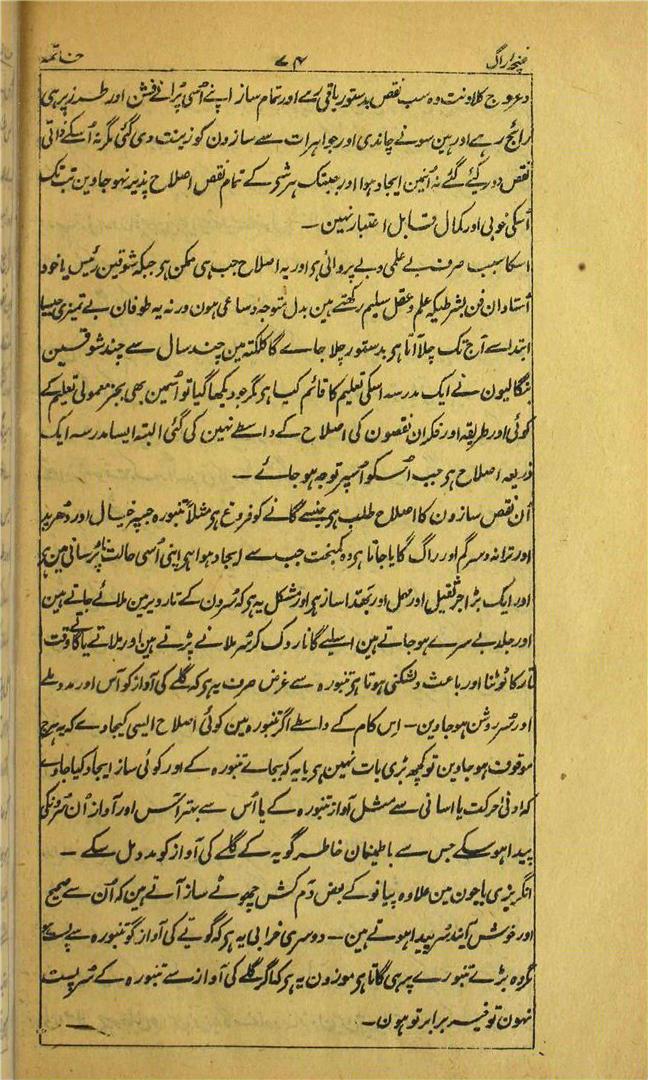 غنچہ راگ ۷۴ خاتمہ
دعروج کلاونت وہ سب نقص بدستور باقی رہے اور تمام ساز اپنے اُسی پُرانے فشن اور طرز پر ہی
رائج رہے اور ہین سونے چاندی اور جواہرات سے سازون کو زینت دی گئی مگر نہ اُسکے ذاتی
نقص دور کیے گئے نہ اُنمین ایجاد ہوا اور جبتک ہر شی کے تمام نقص اصلاح پذیر نہو جاوین تب تک
اُسکی خوبی اور کمال قابل اعتبار نہین ۔
اسکا سبب صرف بے علمی و بے پروائی ہی اور یہ اصلاح جب ہی ممکن ہی جبکہ شوقین رئیس یا خود
اُستادان فن بشرطیکہ علم و عقل سلیم رکھتے ہین بدل متوجہ و ساعی ہون ورنہ یہ طوفان بے تمیزی جیسا
ابتدا سے آج تک چلا آتا ہی بدستور چلا جاے گا کلکتہ مین چند سال سے چند شوقین
بنگالیون نے ایک مدرسہ اسکی تعلیم کا قائم کیا ہی مگر جو دیکھا گیا تو اُسمین بھی بجز معمولی تعلیم کے
کوئی اور طریقہ اور فکر ان نقصون کی اصلاح کے واسطے نہین کی گئی البتہ ایسا مدرسہ ایک
ذریعہ اصلاح ہی جب اُسکو اُسپر توجہ ہو جائے ۔
اُن نقص سازون کا اصلاح طلب ہی جنسے گانے کو فروغ ہی مثلاً تنبورہ جسپر خیال اور دُھرپد
اور ترانہ و سرگم اور راگ گایا جاتا ہی وہ کمبخت جب سے ایجاد ہوا ہی اپنی اُسی حالت پر ہی
اور ایک بڑا جرثقیل اور مہمل اور بھدا ساز ہی اور مشکل یہ ہی کہ سُرون کے تار دیر مین ملائے جاتے ہین
اور جلد بے سرے ہو جاتے ہین اسلیے گانا روک کر سُر ملانے پڑتے ہین اور ملاتے یا گاتے وقت
تار کا ٹوٹنا اور باعث دلشکنی ہوتا ہی تنبورہ سے غرض صرف یہ ہی کہ گلے کی آواز کو آس اور مدد ملے
اور سُر روشن ہو جاوین ۔ اس کام کے واسطے اگر تنبورہ مین کوئی اصلاح ایسی کیجاوے کہ یہ ہرج
موقوف ہو جاوین تو کچھ بُری بات نہین ہی یا یہ کہ بجاے تنبورہ کے اور کوئی ساز ایجاد کیا جاوے
کہ ادنیٰ حرکت یا آسانی سے مثل آواز تنبورہ کے یا اُس سے بہتر آس اور آواز اُن سُرونکی
پیدا ہو سکے جس سے باطمینان خاطر گویہ کے گلے کی آواز کو مدد مل سکے ۔
انگریزی باجون مین علاوہ پیانو کے بعض دَم کش چھوٹے ساز آتے ہین کہ اُن سے صحیح
اور خوش آئند سُر پیدا ہوتے ہین ۔ دوسری خرابی یہ ہی کہ گویے کی آواز گو تنبورہ سے پست ہو
مگر وہ بڑے تنبورے پر ہی گاتا ہی موزون یہ ہی کہ اگر گلے کی آواز سے تنبورہ کے سُر پست
نہون تو خیر برابر تو ہون ۔